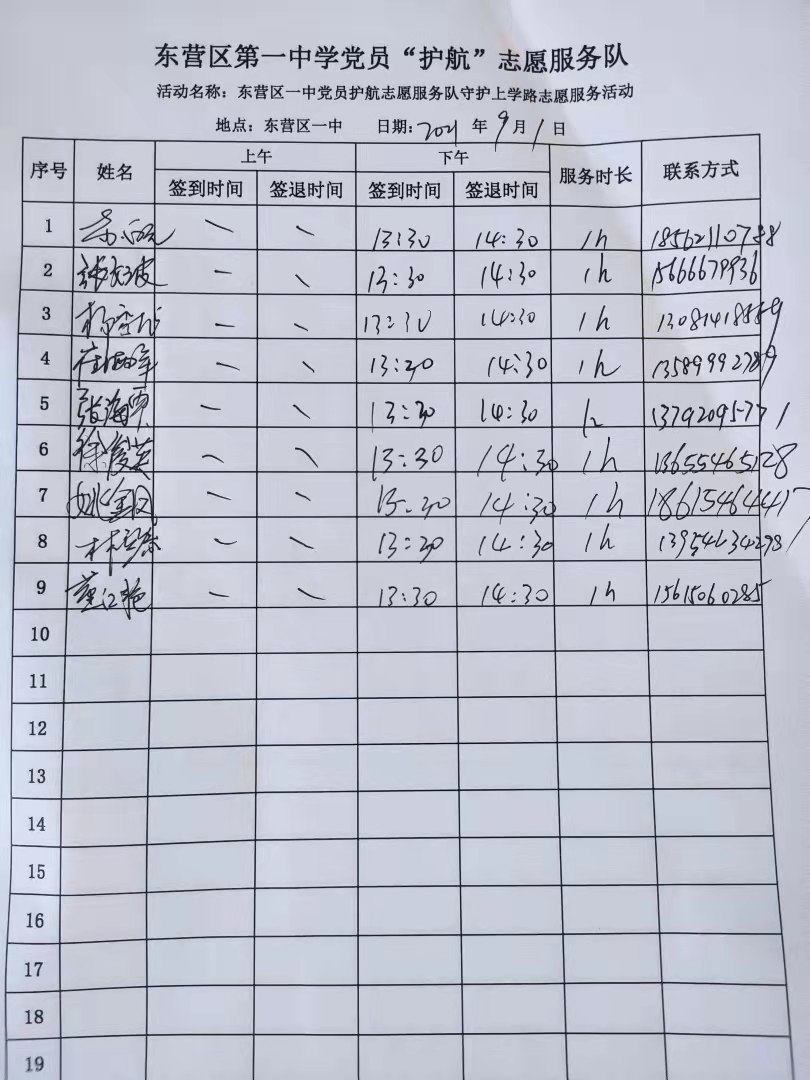 东营区第一中学党员“护航”志愿服务队
活动名称：东营区一中党员护航志愿服务队守护上学路志愿服务活动
地点：东营区一中 日期：2021 年 9 月 1 日
序号 姓名 上午 下午 服务时长 联系方式
签到时间 签退时间 签到时间 签退时间
1 一 一 13:30 14:30 1h 18562110788
2 一 一 13:30 14:30 1h 15666679936
3 一 一 13:30 14:30 1h
4 一 一 13:30 14:30 1h 13589992789
5 张海军 一 一 13:30 14:30 h
6 徐俊英 一 一 13:30 14:30 1h 13655465128
7 一 一 13:30 14:30 1h 18615464417
8 一 一 13:30 14:30 1h
9 董江艳 一 一 13:30 14:30 1h 15615060285
10
11
12
13
14
15
16
17
18
19